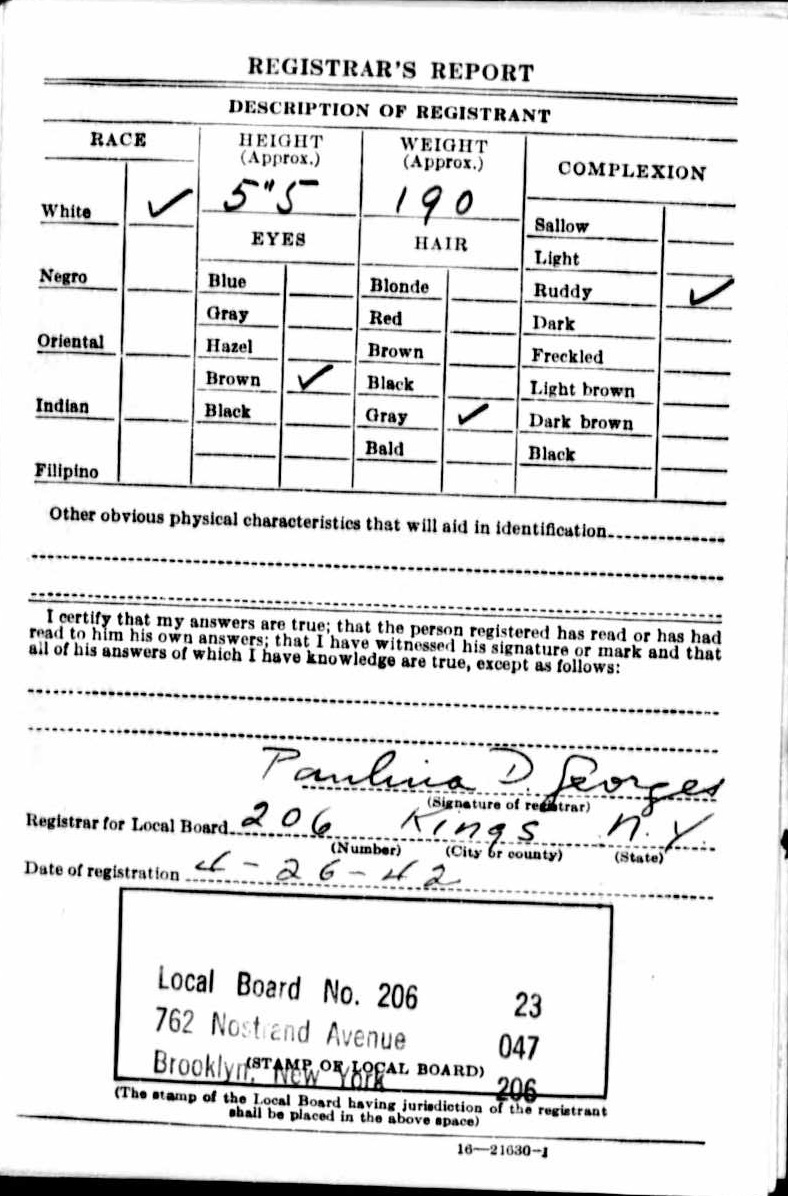 REGISTRAR'S REPORT
DESCRIPTION OF REGISTRANT
RACE
HEIGHT (Approx.)
WEIGHT (Approx.)
COMPLEXION
White ✓
5"5
190
Sallow
EYES
HAIR
Light
Negro
Blue
Blonde
Ruddy ✓
Gray
Red
Dark
Oriental
Hazel
Brown
Freckled
Brown ✓
Black
Light brown
Indian
Black
Gray ✓
Dark brown
Bald
Black
Filipino
Other obvious physical characteristics that will aid in identification
I certify that my answers are true; that the person registered has read or has had
read to him his own answers; that I have witnessed his signature or mark and that
all of his answers of which I have knowledge are true, except as follows:
Paulina D. Georges
(Signature of registrar)
Registrar for Local Board 206 Kings N.Y.
(Number) (City or county) (State)
Date of registration 4-26-42
Local Board No. 206 23
762 Nostrand Avenue 047
Brooklyn, New York 206
(STAMP OF LOCAL BOARD)
(The stamp of the Local Board having jurisdiction of the registrant
shall be placed in the above space)
16—21630-1